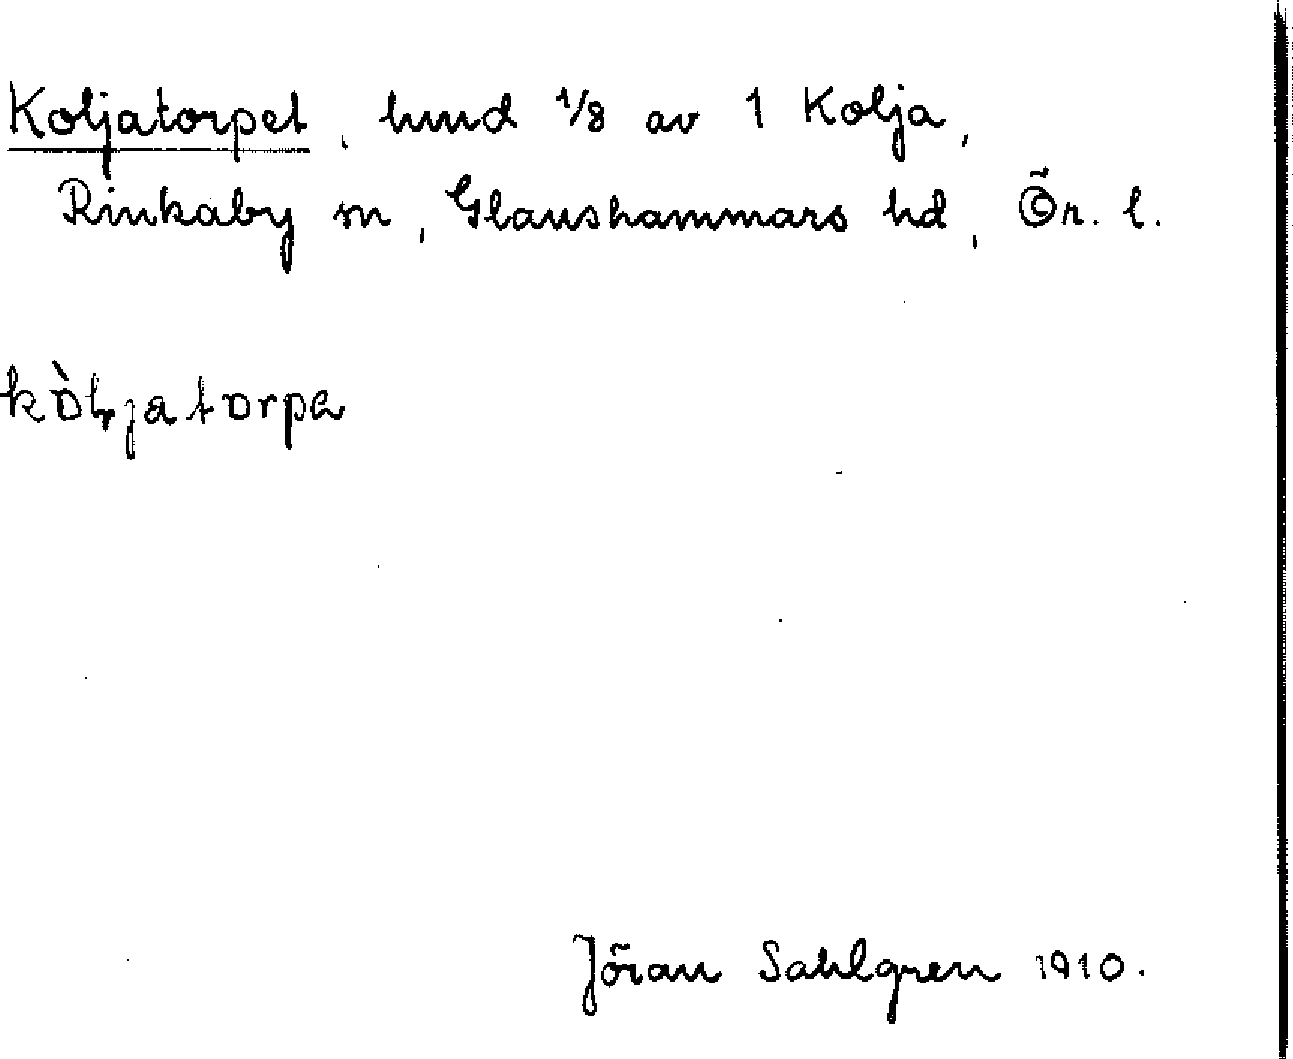 Koljatorpet, hmd 1/8 av 1 Kolja,
Rinkaby sn, Glanshammars hd, Ör. l.
kòljatorpa
Jöran Sahlgren 1910.